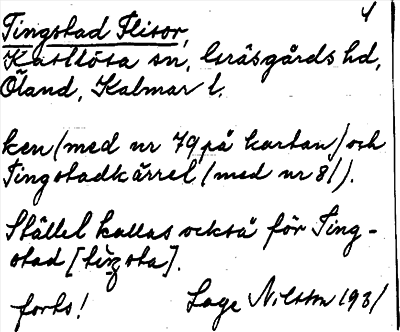 4
Tingstad Flisor,
Kastlösa sn, Gräsgårds hd,
Öland, Kalmar l.
ken (med nr 79 på kartan) och
Tingstadkärret (med nr 81).
Stället kallas också för Ting-
stad [tìŋsta].
forts! Lage Nilsson 1931